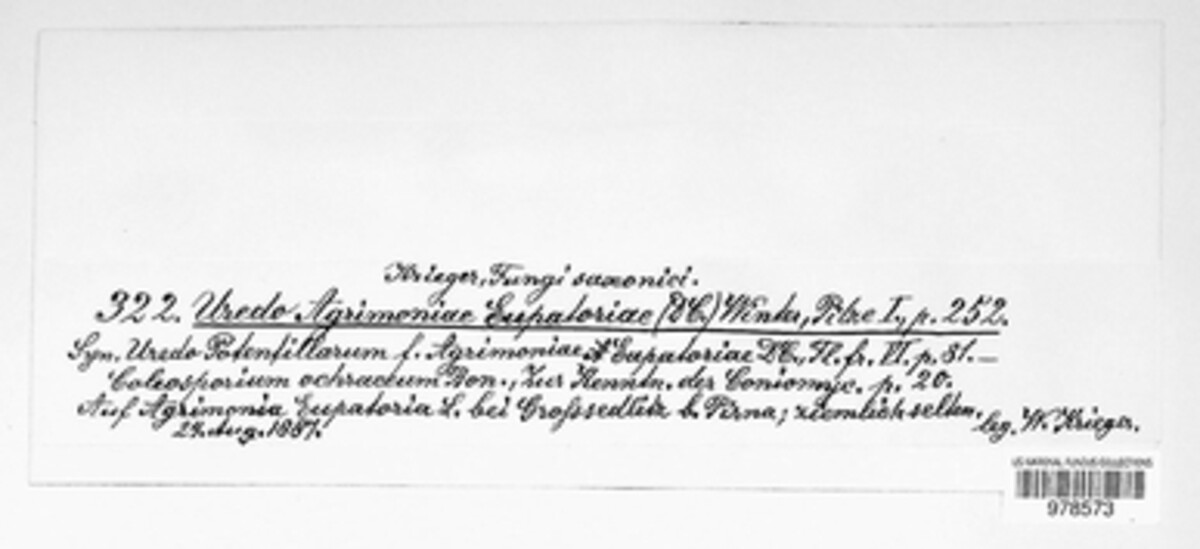 Krieger, Fungi saxonici.
322. Uredo Agrimoniae Eupatoriae (DC.) Winter, Pilze I., p. 252.
Syn. Uredo Potentillarum f. Agrimoniae Eupatoriae DC., Fl. fr. VI. p. 81. —
Coleosporium ochraceum Bon., Zur Kenntn. der Coniomyc. p. 20.
Auf Agrimonia Eupatoria L. bei Grofssedlitz b. Pirna; ziemlich selten.
Aug. 1887.
leg. W. Krieger.
US NATIONAL FUNGUS COLLECTIONS
978573